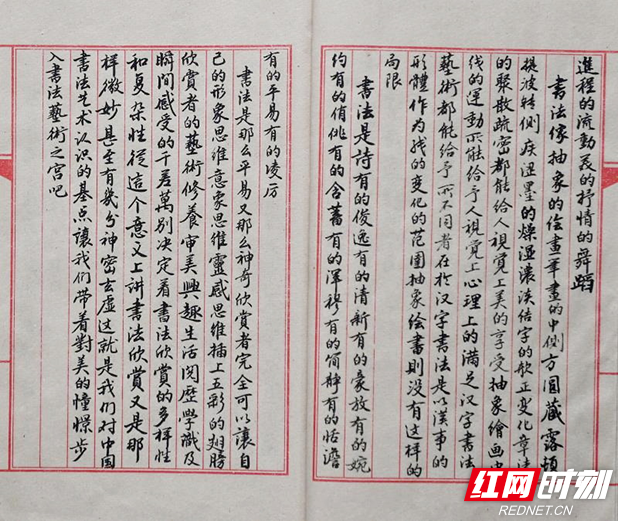 進程的流動美的抒情的舞蹈
书法像抽象的绘畫筆畫的中側方圓藏露頓
挫波转側疾涩墨的燥湿濃淡结字的欹正变化章法
的聚散疏密都能给人視覺上美的享受抽象繪画中
线的運動所能给予人視覺上心理上的满足汉字书法
藝術都能给予所不同者在於汉字書法是以漢字的
形體作为线的变化的范圍抽象绘畫則没有这样的
局限
書法是詩有的俊逸有的清新有的豪放有的婉
约有的俏佻有的含蓄有的渾穆有的简静有的恬澹
有的平易有的凌厉
书法是那么平易又那么神奇欣赏者完全可以讓自
己的形象思维意象思维靈感思维插上五彩的翅膀
欣赏者的藝術修養審美興趣生活閱歷學識及
瞬间感受的千差萬别决定着書法欣赏的多样性
和复杂性從這个意义上讲書法欣赏又是那
样微妙甚至有幾分神密玄虚这就是我们对中國
書法艺术认识的基点讓我们带着對美的憧憬步
入書法藝術之宫吧
红网时刻
REDNET.CN